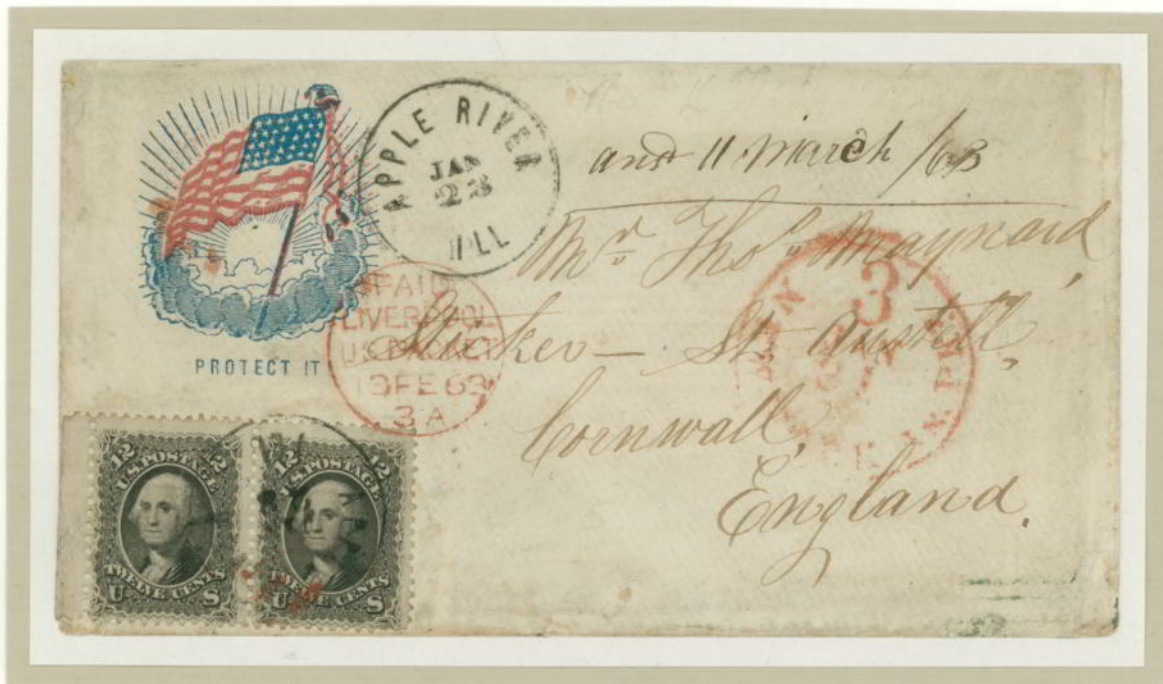 APPLE RIVER
JAN
23
ILL
ansd 11 March /63
Mr. Thos. Maynard
St. Austell
Cornwall,
England.
PROTECT IT
PAID
LIVERPOOL
U.S. PACKET
13 FE 63
3 A
3
12 12
U.S. POSTAGE
TWELVE CENTS
U S
12 12
U.S. POSTAGE
TWELVE CENTS
U S